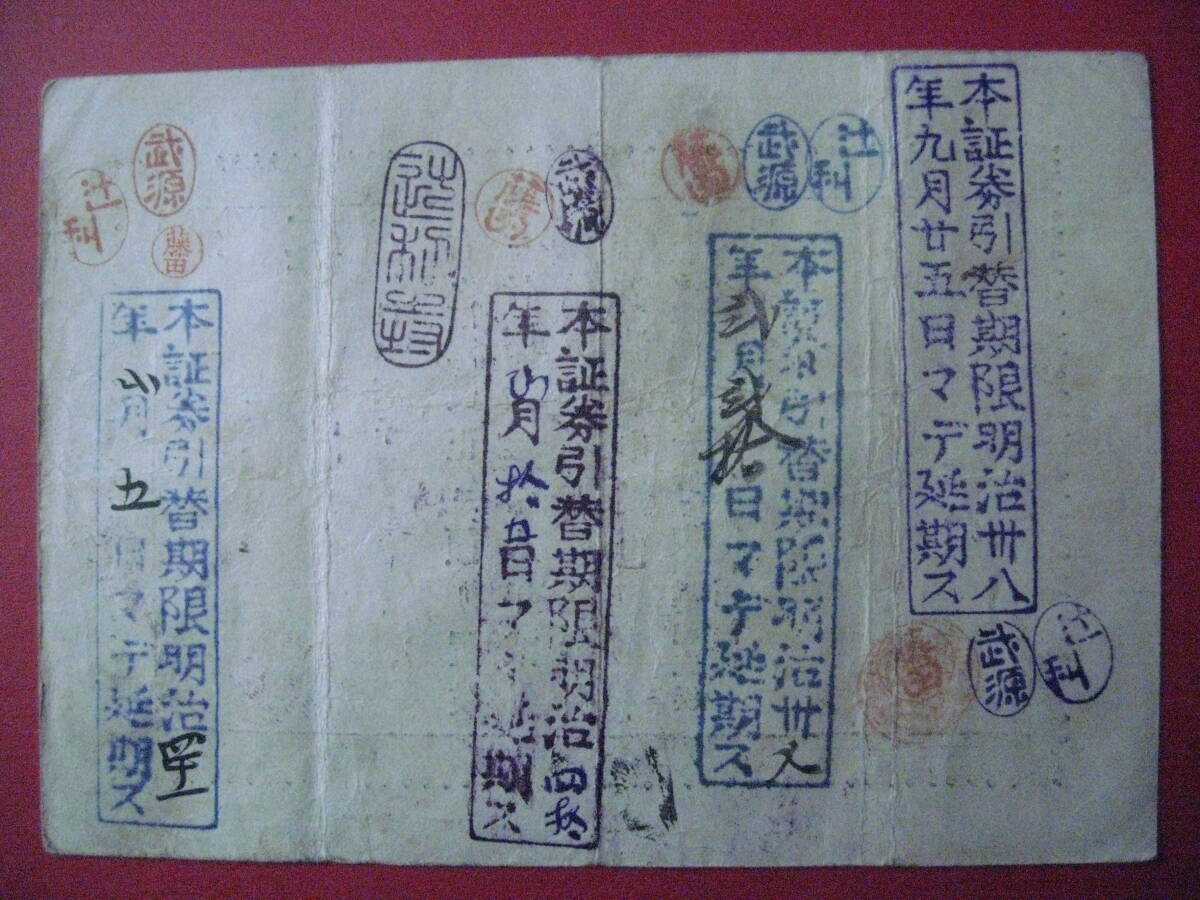 本証券引替期限明治卅八
年九月廿五日マデ延期ス
辻利
武源
辻利
武源
本証券引替期限明治卅
年弐月 日マデ延期ス
本証券引替期限明治四拾
年 月拾五日マデ延期ス
武源
藤
本証券引替期限明治
年 月五日マデ延期ス
武源
辻利
藤田